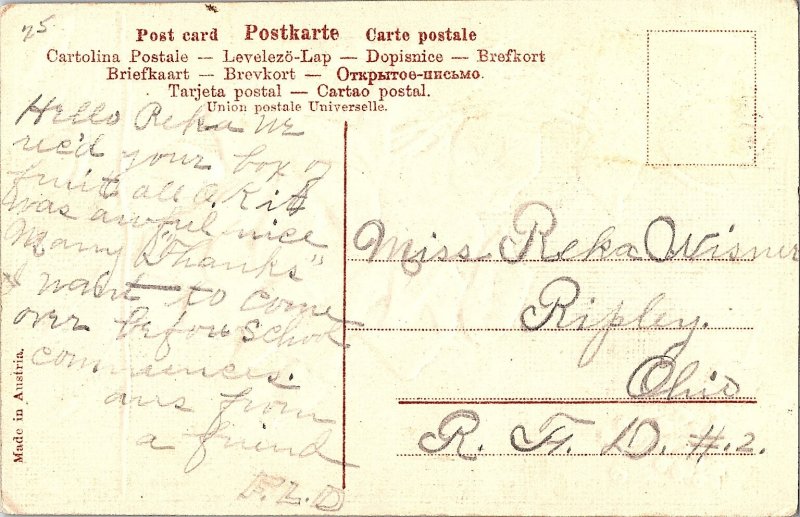 25
Post card Postkarte Carte postale
Cartolina Postale — Levelező-Lap — Dopisnice — Brefkort
Briefkaart — Brevkort — Открытое-письмо.
Tarjeta postal — Cartao postal.
Union postale Universelle.
Hello Reka We
rec'd your box of
fruit all O.K. it
was awful nice
Many "Thanks"
want to come
over before school
commences.
ans from
a friend
P.L.D
Miss Reka Wisner
Ripley.
Ohio
R. F. D. #.2.
Made in Austria.